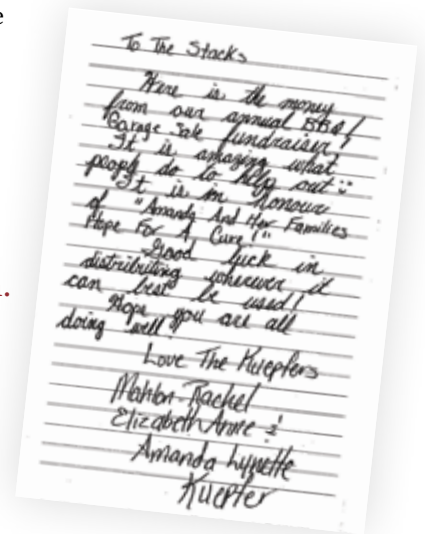 e
.
To The Stacks
Here is the money
from our annual BBQ/
Garage Sale fundraiser!
It is amazing what
people do to help out :)
It is in honour
of "Amanda And Her Families
Hope For A Cure!"
Good luck in
distributing wherever it
can best be used!
Hope you are all
doing well!
Love The Kuepfers
Mahlon-Rachel
Elizabeth Anne &
Amanda Lynette
Kuepfer